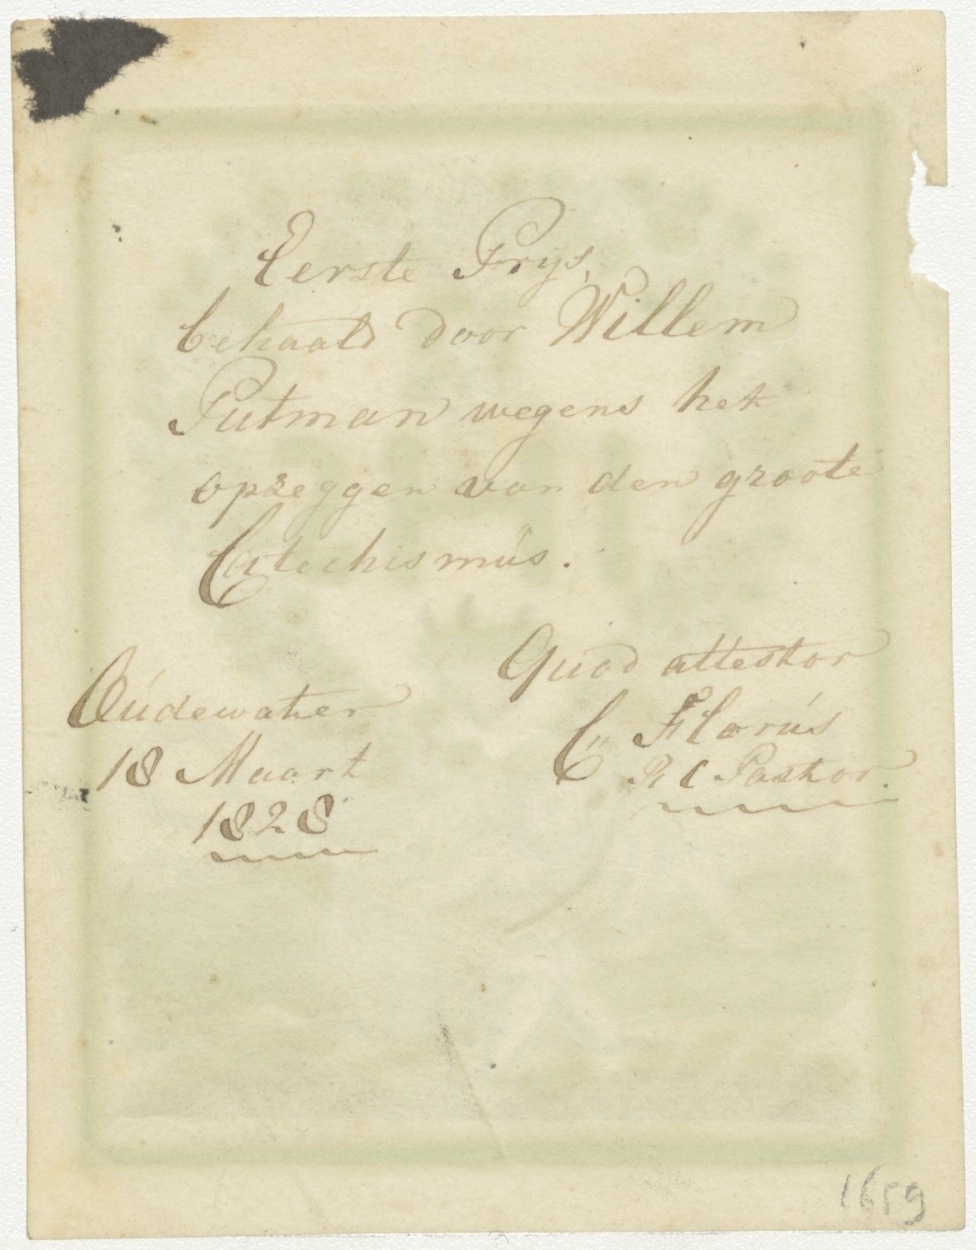 Eerste Prys,
behaald door Willem
Putman wegens het
opzeggen van den groote
Catechismús.
Quod attestor
C Florús
R C Pastor.
Oúdewater
18 Maart
1828
1659